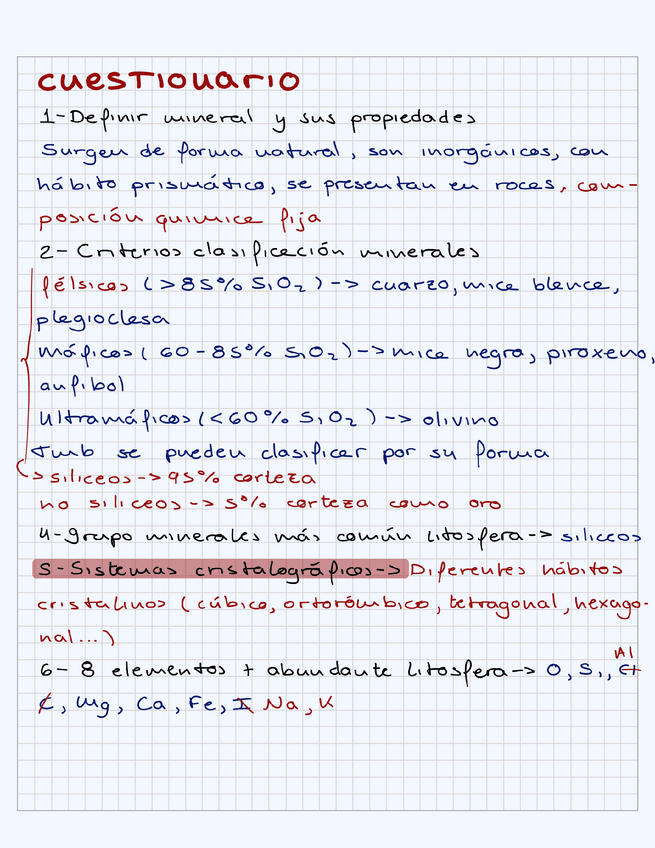 cuesTionario
1-Definir mineral y sus propiedades
Surgen de forma natural, son inorgánicos, con
hábito prismático, se presentan en rocas, com-
posición quimica fija
2- Criterios clasificación minerales
félsicos (>85% SiO2) -> cuarzo, mica blanca,
plagioclasa
máficos (60-85% SiO2) -> mica negra, piroxeno,
anfibol
Ultramáficos (<60% SiO2) -> olivino
Tmb se pueden clasificar por su forma
-> siliceos -> 95% corteza
no siliceos -> 5% corteza como oro
4-grupo minerales más común litosfera -> siliceos
5-Sistemas cristalográficos -> Diferentes hábitos
cristalinos (cúbico, ortorómbico, tetragonal, hexago-
nal...)
Al
6- 8 elementos + abundante litosfera -> O, Si,
, Mg, Ca, Fe, Na, K